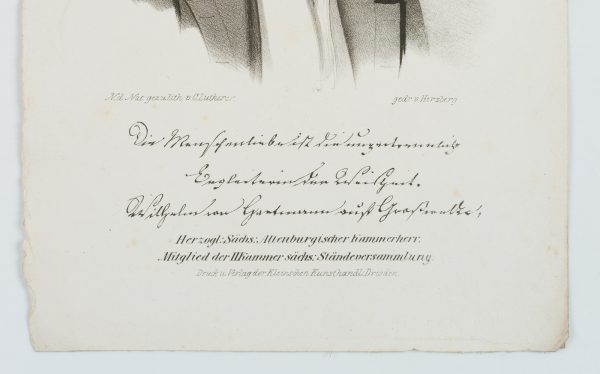 N.d. Nat. gez. u. lith. v. C. Lutherer. gedr. v. Herzberg
Die Menschenliebe ist die unzertrennliche
Begleiterin der Weisheit.
Wilhelm von Hartmann auf
Herzogl: Sächs: Altenburgischer Kammerherr.
Mitglied der II Kammer sächs: Ständeversammlung.
Druck u. Verlag der Kleinschen Kunsthandl: Dresden.